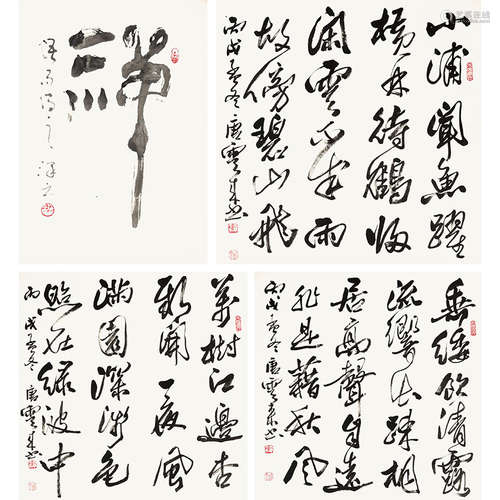 禅
小浦聞魚躍
横林待鶴歸
閑雲不成雨
故傍碧山飛
丙戌孟冬 唐雲來書
萬樹江邊杏
新開一夜風
滿園深淺色
照在緑波中
丙戌孟冬 唐雲來書
垂緌飲清露
流響出疎桐
居高聲自遠
非是藉秋風
丙戌孟冬 唐雲來書